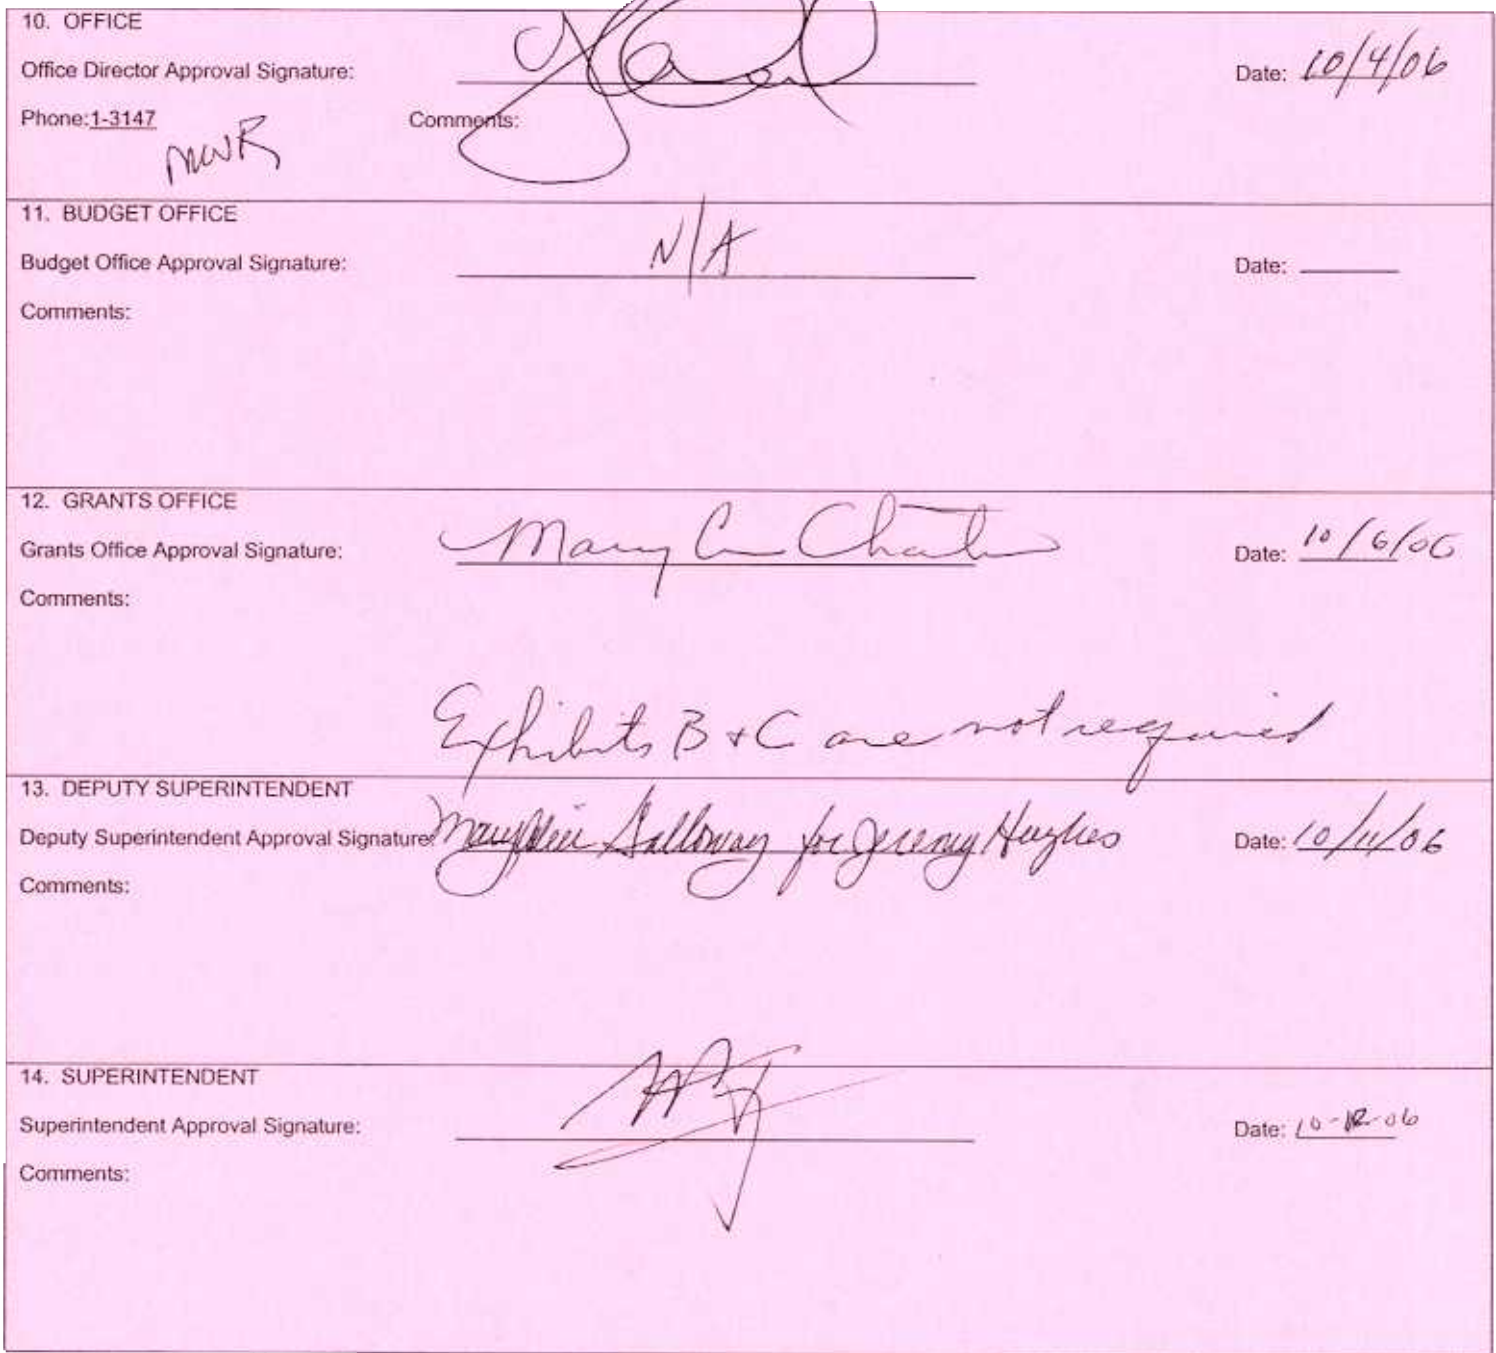 10. OFFICE
Office Director Approval Signature: Date: 10/4/06
Phone:1-3147 Comments:
MWR
11. BUDGET OFFICE
Budget Office Approval Signature: N/A Date:
Comments:
12. GRANTS OFFICE
Grants Office Approval Signature: Mary Date: 10/6/06
Comments:
Exhibits B + C are not required
13. DEPUTY SUPERINTENDENT
Deputy Superintendent Approval Signature: Galloway for Jeremy Hughes Date: 10/11/06
Comments:
14. SUPERINTENDENT
Superintendent Approval Signature: Date: 10-12-06
Comments: